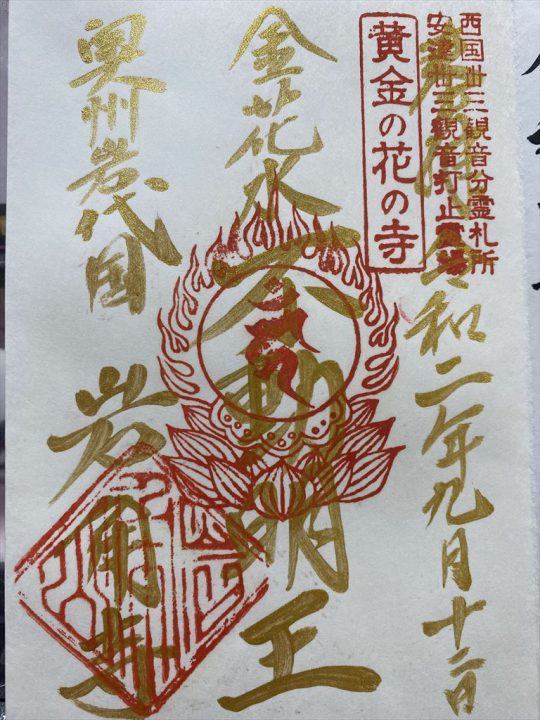 西国卅三観音分霊札所
安達卅三観音打止霊場
黄金の花の寺
奉拝 令和二年九月十二日
金花水
不動明王
奥州岩代国
岩角寺